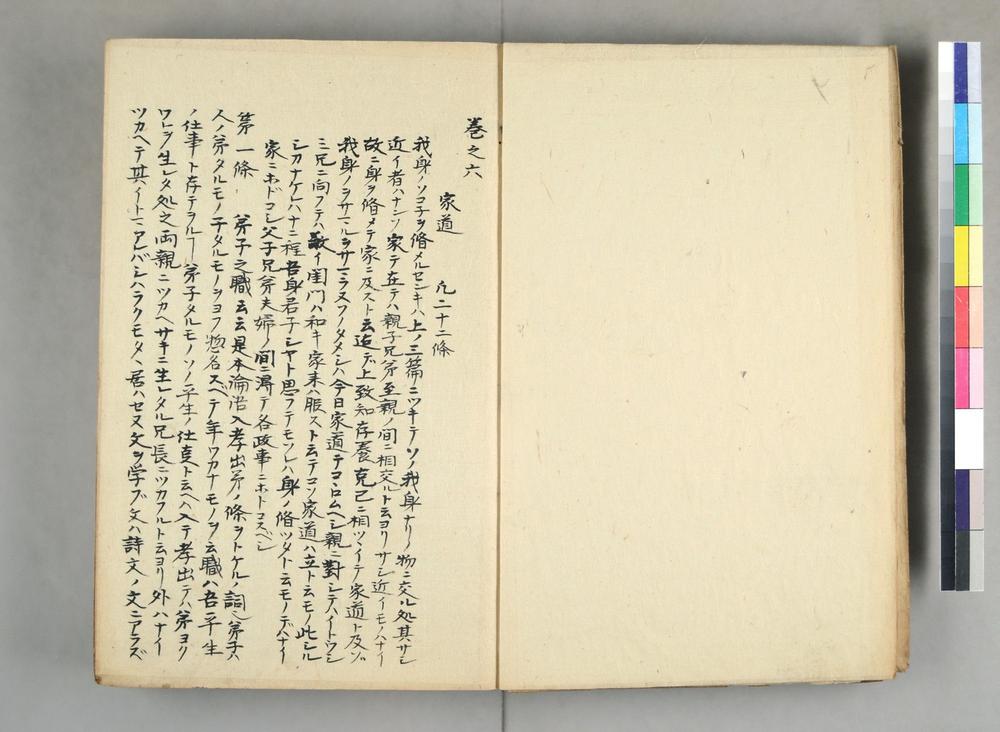 巻之六
家道　凡二十二條
我身ノソコ子ヲ脩メルセンキハ上ノ三篇ニツキテソノ我身ナリノ物ニ交ル処其サシ
近イ者ハナンソ家テ在テハ親子兄弟至親ノ間ニ相交ルト云ヨリサシ近イモノハナイ
故ニ身ヲ脩メテ家ニ及スト云迠デ上致知存養克己ニ相ツヾイテ家道ト及ゾ
我身ノヲサマルヲサマラヌフノタメシハ今日家道テヨロムヘシ親ニ對シテハイトウシ
三兄ニ向フテハ敬イ閨門ハ和キ家来ハ服スト云テコソ家道ハ立ト云モノ此シル
シカナケレハナニ程吾身君子シヤト思フテモソレハ身ノ脩ツタト云モノデハナイ
家ニホドコシ父子兄弟夫婦ノ間ニ得テ各政事ニホトコスベシ
第一條　弟子之職云云是本論語入孝出弟ノ條ヲトケルノ詞也弟子ハ
人ノ弟タルモノ子タルモノヲヨフ惣名スベテ年ワカナモノヲ云職ハ吾平生
ノ仕事ト存テヲルヿ弟子タルモノソノ平生ノ仕事ト云ヘハ入テ孝出テハ弟ヨリ
ワレヲ生レタ処之両親ニツカヘサキニ生レタル兄長ニツカフルト云ヨリ外ハナイ
ツカヘテ其イトマアレバシハラクモタヾ居ハセヌ文ヲ学ブ文ハ詩文ノ文ニアラズ